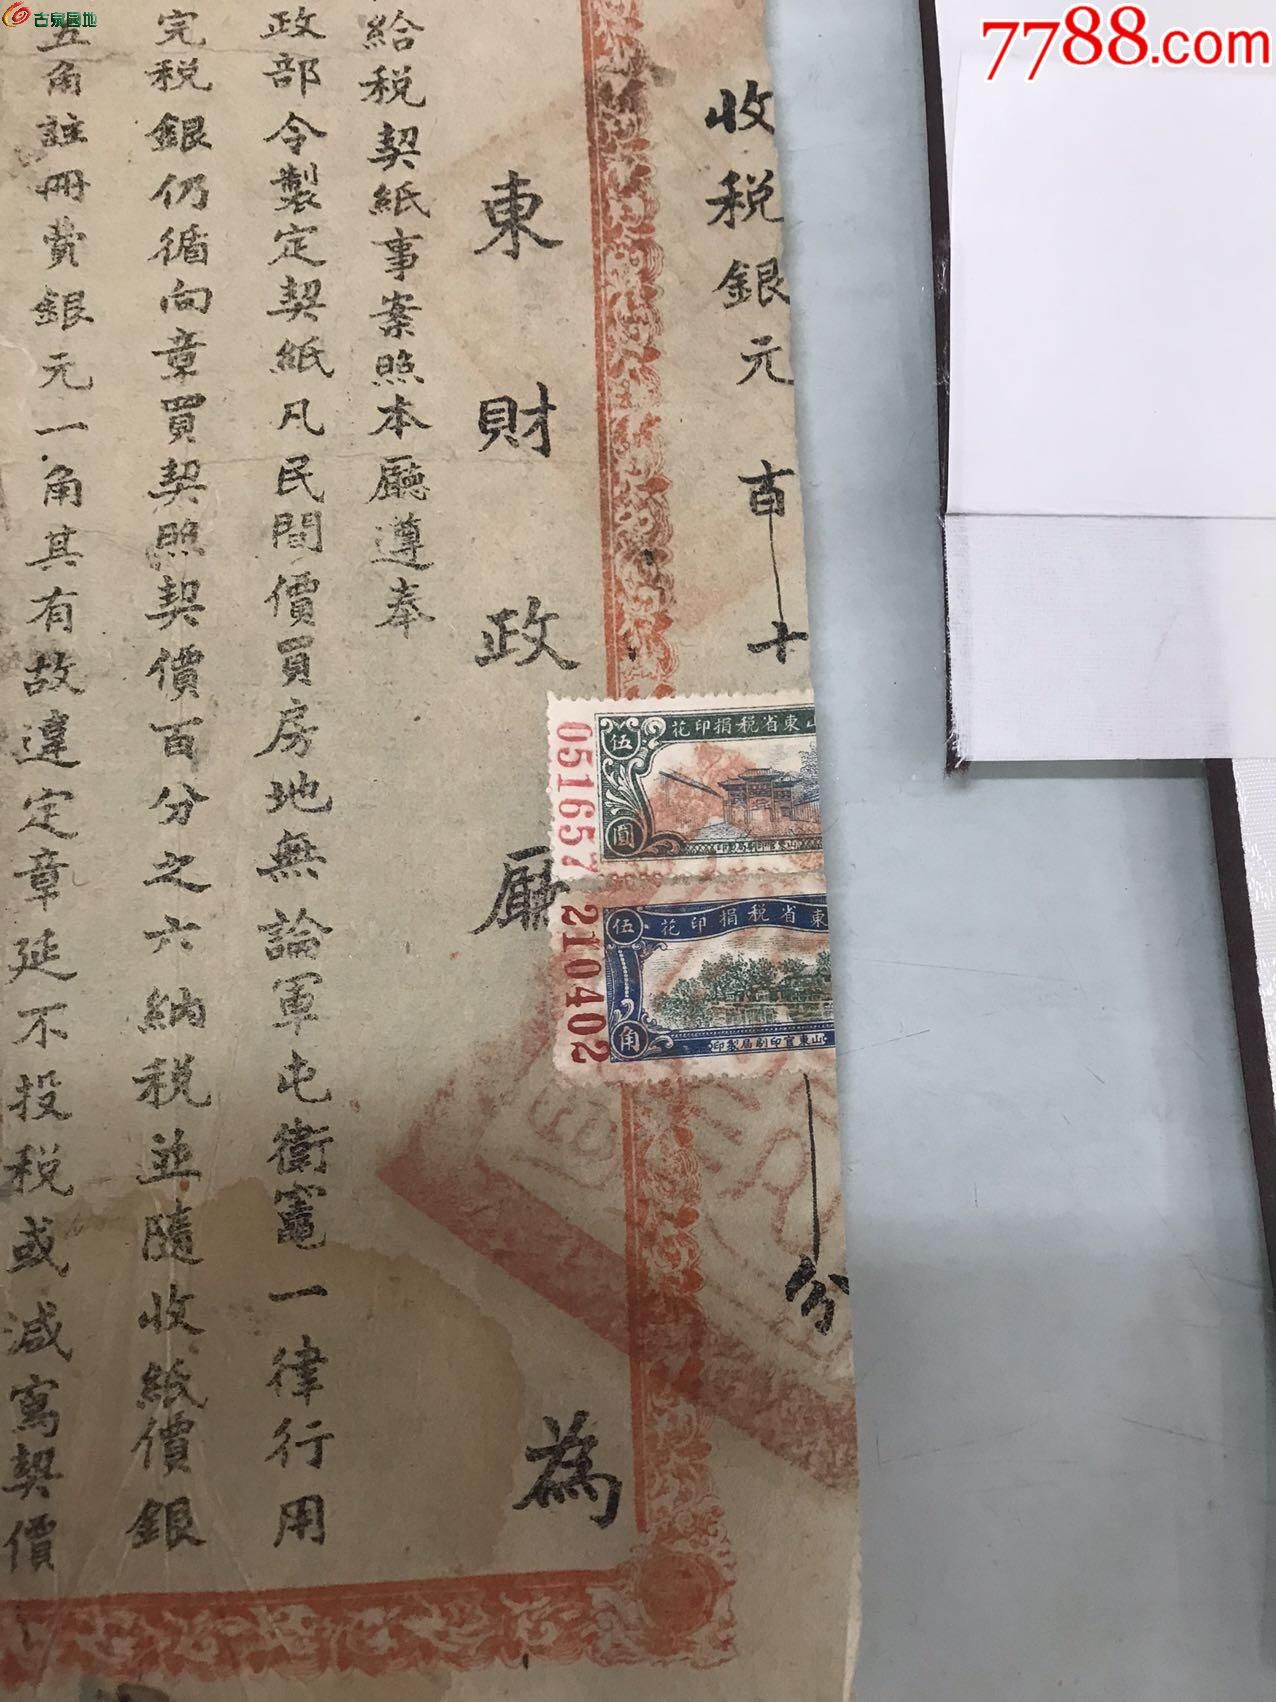 古泉园地
7788.com
收税銀元 百 十
分
東財政廳為
給税契紙事案照本廳遵奉
政部令製定契紙凡民間價買房地無論軍屯衛竈一律行用
完税銀仍循向章買契照契價百分之六納税並隨收紙價銀
五角註冊費銀元一角其有故違定章延不投税或減寫契價
花印捐税省東山
伍
圓
051657
花印捐税省東
伍
角
印製局刷印官東山
210402